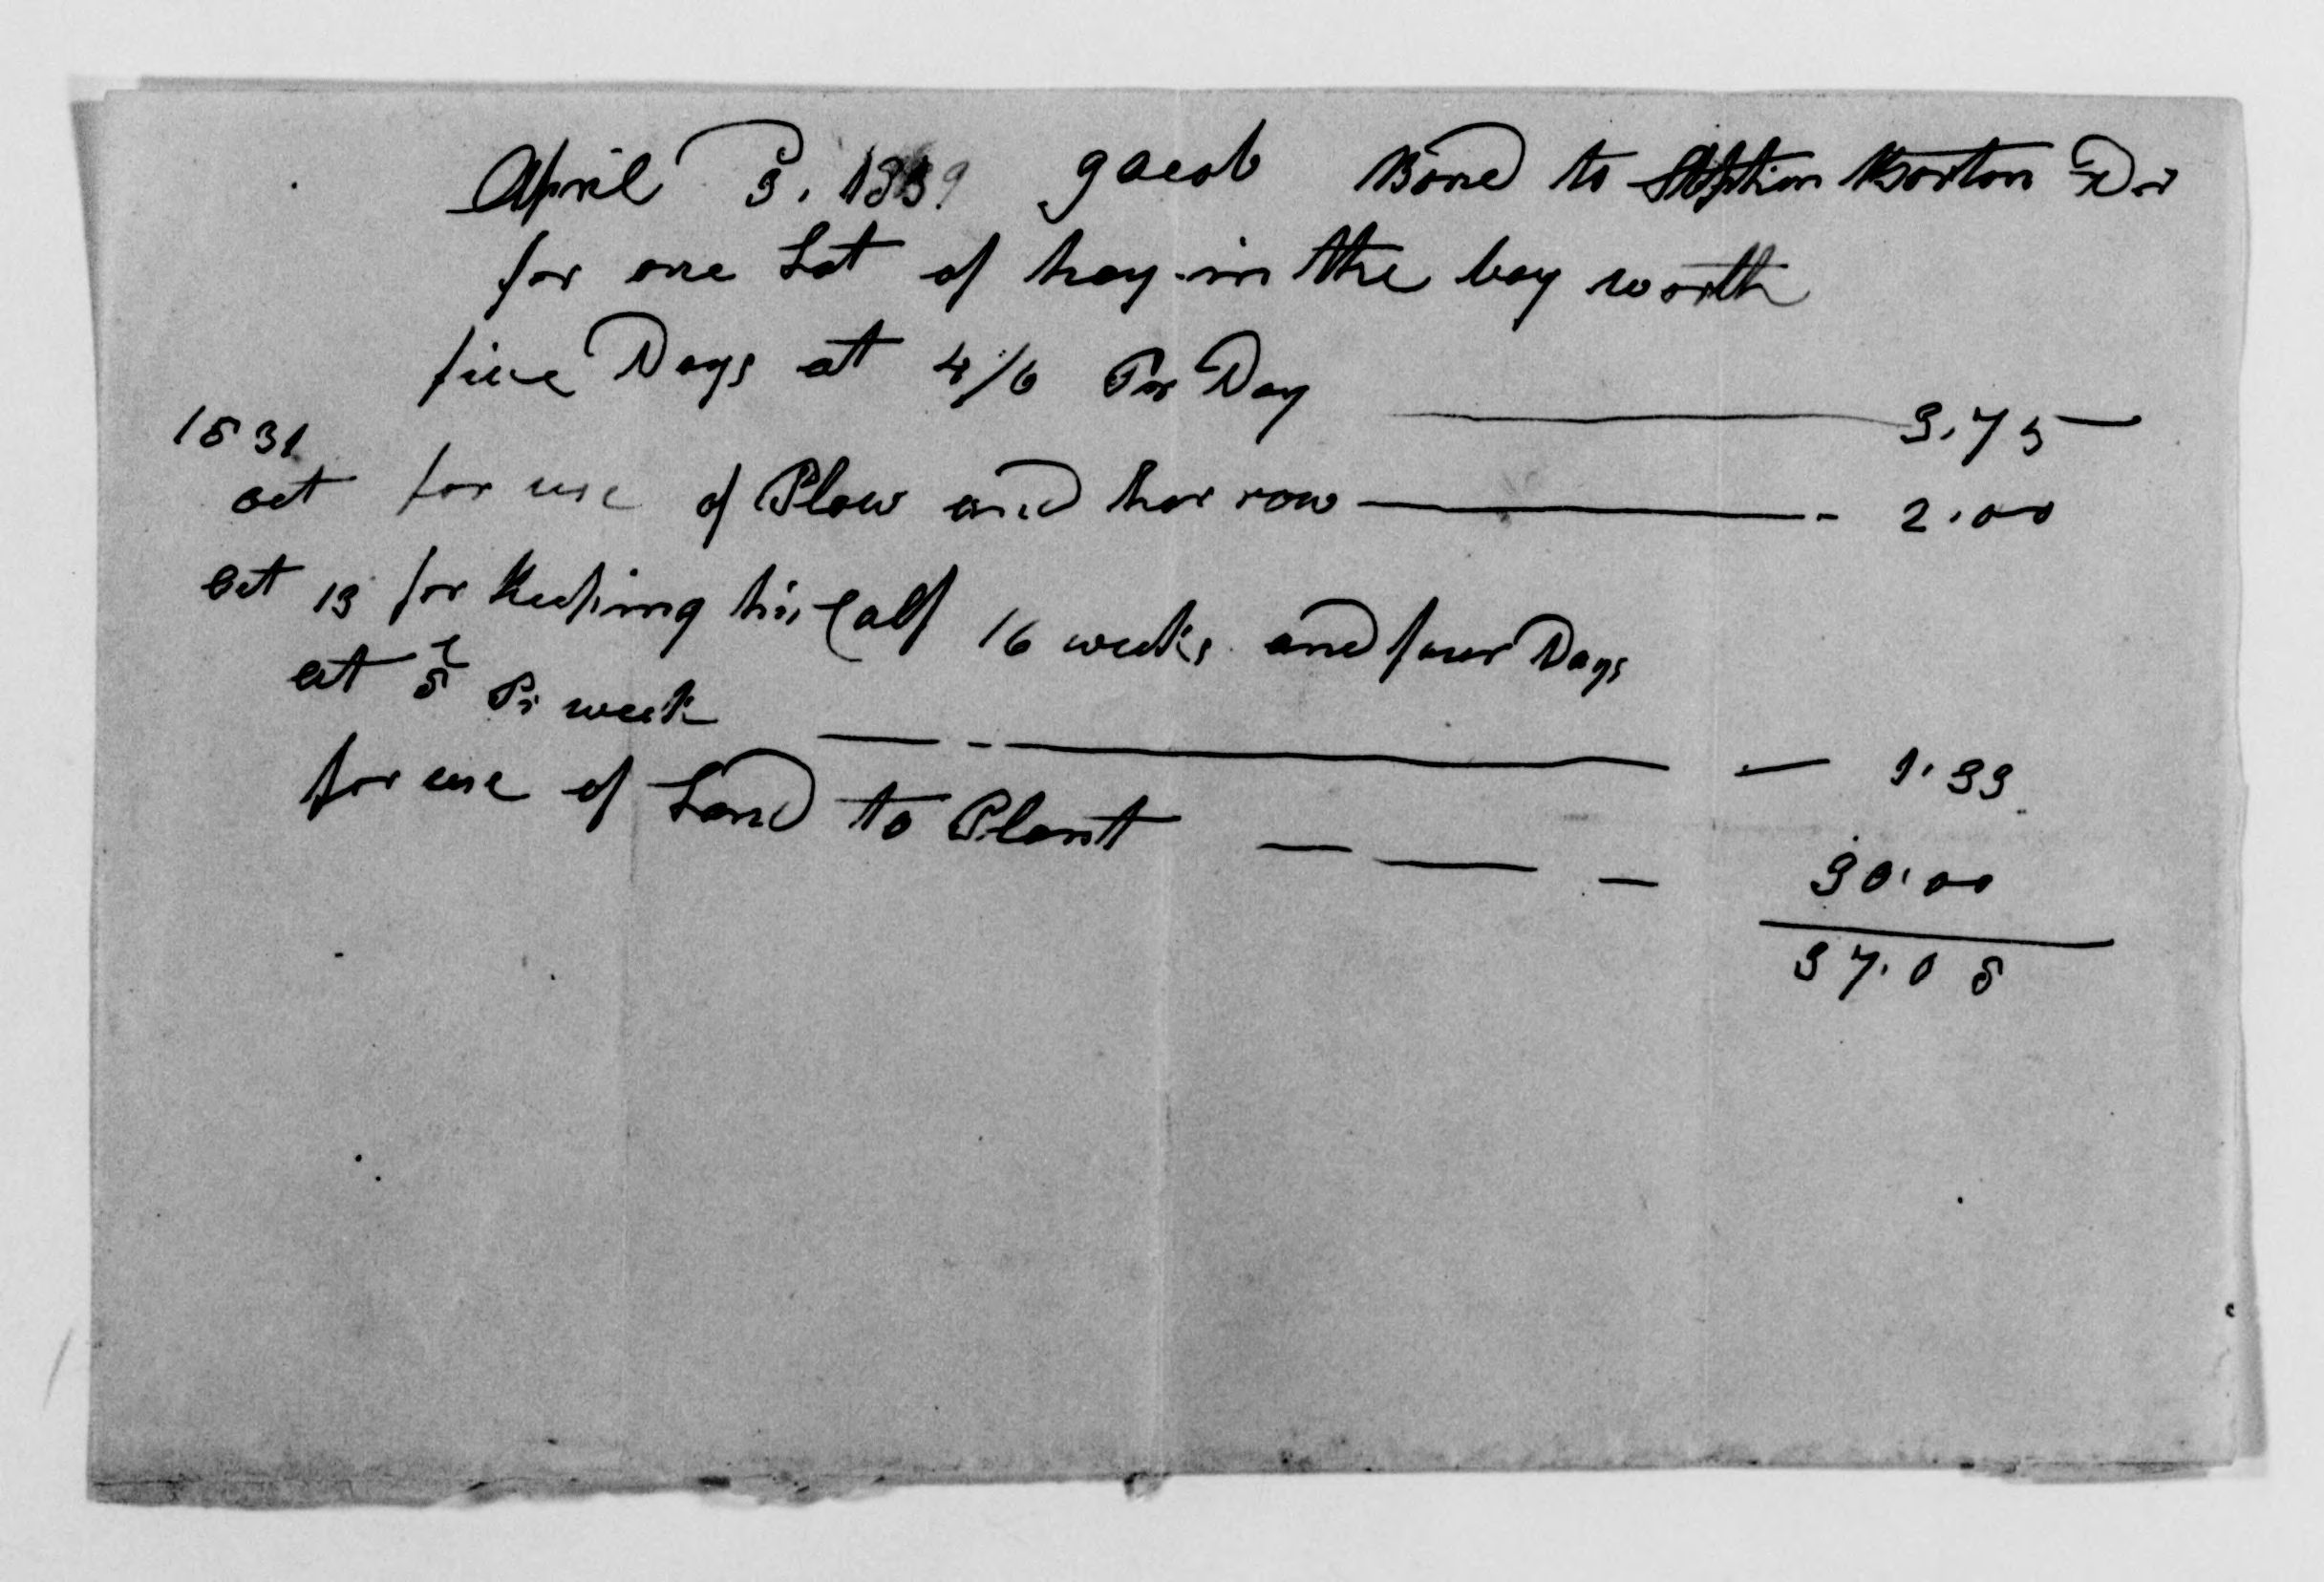 April 3. 1839 Jacob Bond to Stephen Borton Dr
for one Lot of hay in the bay worth
five Days at 4/6 Per Day 3.75
1831
oct for use of Plow and harrow 2.00
oct 13 for keeping his Calf 16 weeks and four Days
at 8 c Pr week 1.33
for use of Land to Plant 30.00
37.08